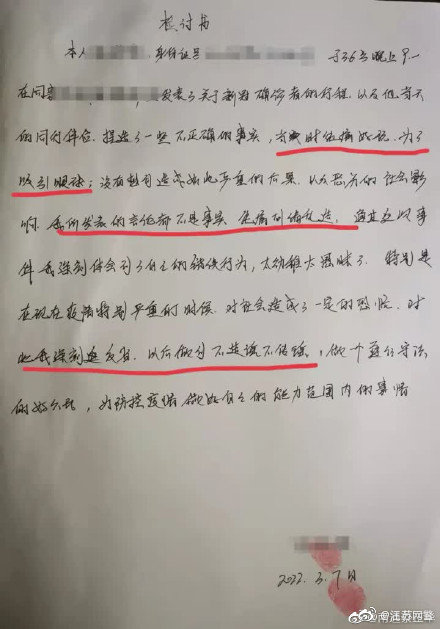 检讨书
本人 身份证号 于3.6号晚上9.
在同事 发表了关于新冠确诊者的行程,以及他当天
的同行伴侣.捏造了一些不正确的事实,
吸引眼球;没有想到造成如此严重的后果.以及恶劣的社会影
响.我所发表的言论都不是事实 通过这次事
件我深刻体会到了自己的错误行为,太幼稚太愚昧了.特别是
在现在疫情特别严重的时候.对社会造成了一定的恐慌.对
此我深刻这反省.以后做到不造谣不传谣,做一个遵纪守法
的好公民,为防控疫情做好自己的能力范围内的事情
2022.3.7日